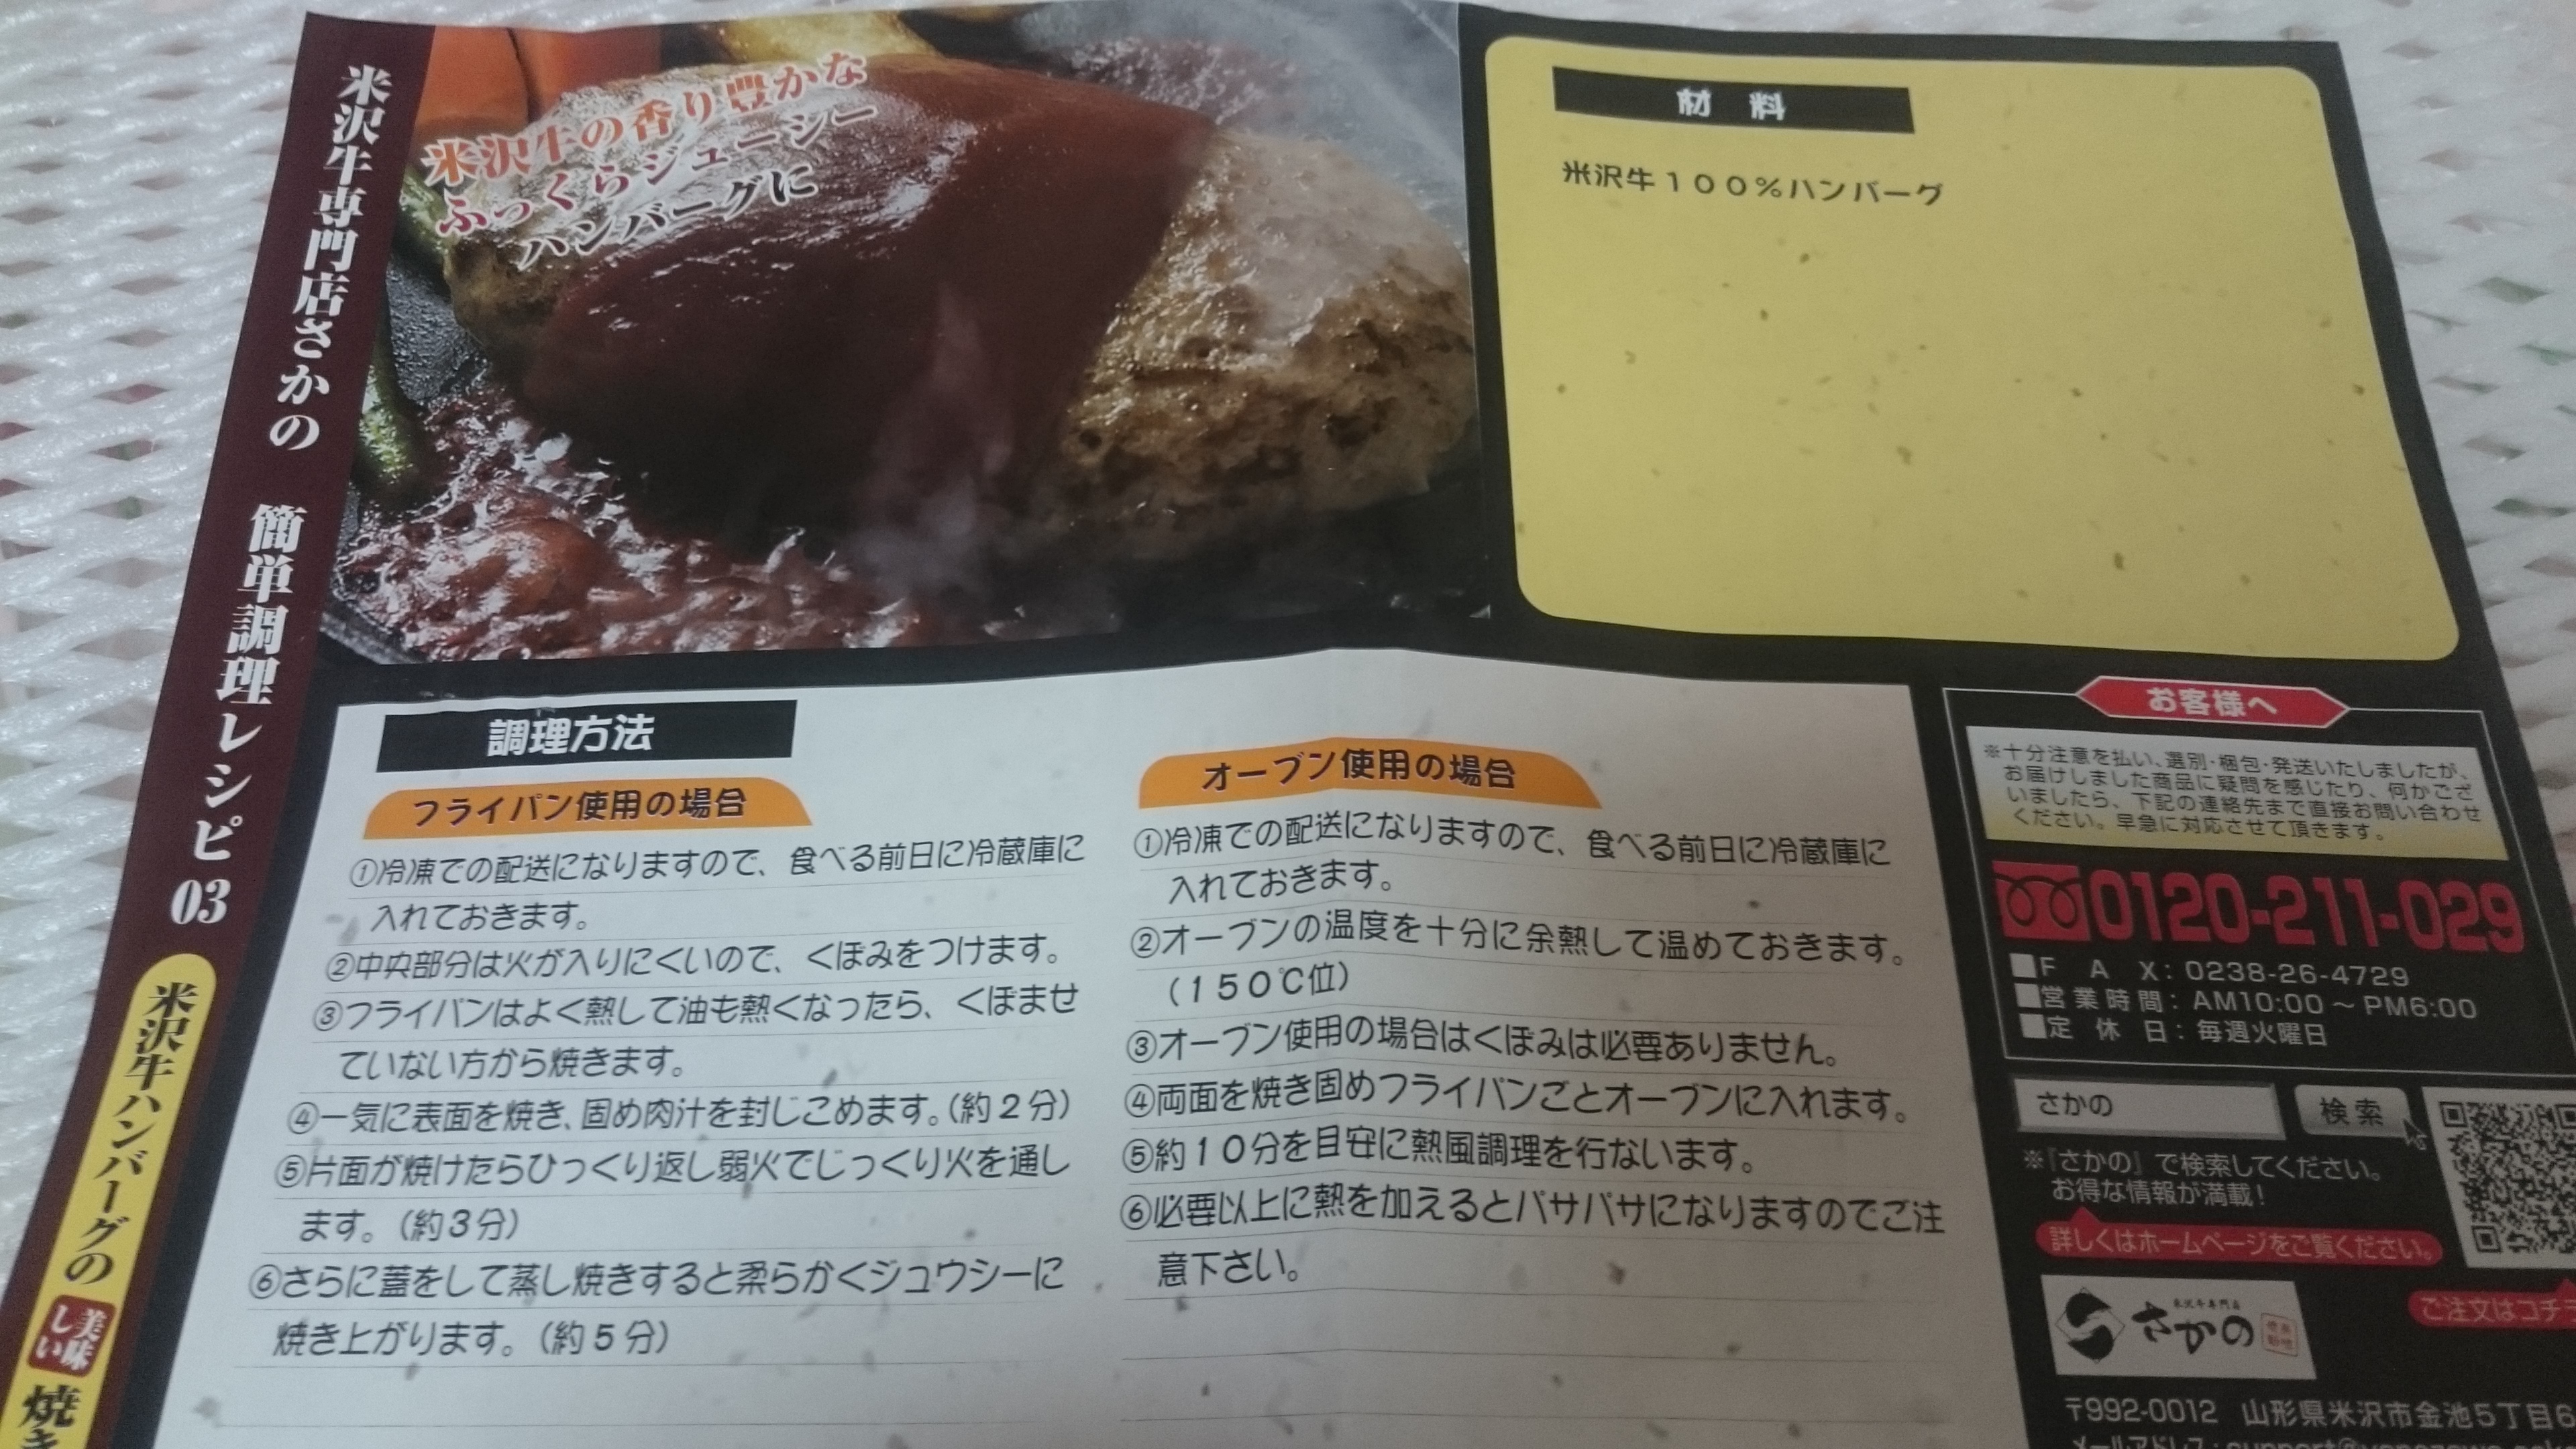 米沢牛専門店さかの 簡単調理レシピ 03
米沢牛ハンバーグの
美味しい
焼き
米沢牛の香り豊かな
ふっくらジューシー
ハンバーグに
材 料
米沢牛100%ハンバーグ
調理方法
フライパン使用の場合
①冷凍での配送になりますので、食べる前日に冷蔵庫に
入れておきます。
②中央部分は火が入りにくいので、くぼみをつけます。
③フライパンはよく熱して油も熱くなったら、くぼませ
ていない方から焼きます。
④一気に表面を焼き、固め肉汁を封じこめます。(約2分)
⑤片面が焼けたらひっくり返し弱火でじっくり火を通し
ます。(約3分)
⑥さらに蓋をして蒸し焼きすると柔らかくジュウシーに
焼き上がります。(約5分)
オーブン使用の場合
①冷凍での配送になりますので、食べる前日に冷蔵庫に
入れておきます。
②オーブンの温度を十分に余熱して温めておきます。
(150℃位)
③オーブン使用の場合はくぼみは必要ありません。
④両面を焼き固めフライパンごとオーブンに入れます。
⑤約10分を目安に熱風調理を行ないます。
⑥必要以上に熱を加えるとパサパサになりますのでご注
意下さい。
お客様へ
※十分注意を払い、選別・梱包・発送いたしましたが、
お届けしました商品に疑問を感じたり、何かござ
いましたら、下記の連絡先まで直接お問い合わせ
ください。早急に対応させて頂きます。
0120-211-029
■F A X:0238-26-4729
■営業時間:AM10:00~PM6:00
■定 休 日:毎週火曜日
さかの 検索
※『さかの』で検索してください。
お得な情報が満載!
詳しくはホームページをご覧ください。
ご注文はコチ
米沢牛専門店
さかの
〒992-0012 山形県米沢市金池5丁目6
メールアドレス:support@